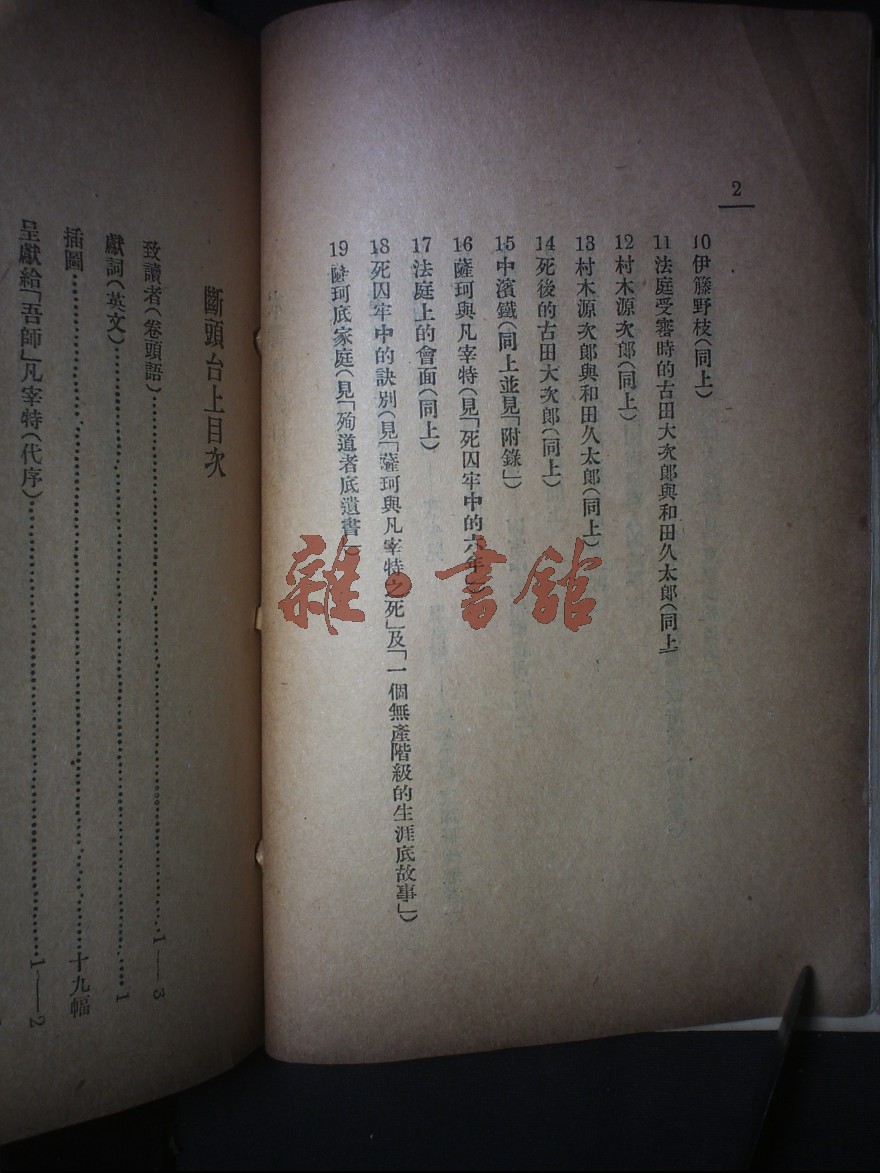 2
10 伊籐野枝(同上)
11 法庭受審時的古田大次郎與和田久太郎(同上)
12 村木源次郎(同上)
13 村木源次郎與和田久太郎(同上)
14 死後的古田大次郎(同上)
15 中濱鐵(同上並見「附錄」)
16 薩珂與凡宰特(見「死囚牢中的六年」)
17 法庭上的會面(同上)
18 死囚牢中的訣別(見「薩珂與凡宰特之死」及「一個無產階級的生涯底故事」)
19 薩珂底家庭(見「殉道者底遺書」)
斷頭台上目次
致讀者(卷頭語)……1——3
獻詞(英文)……1
插圖……十九幅
呈獻給「吾師」凡宰特(代序)……1——2
雜·書館